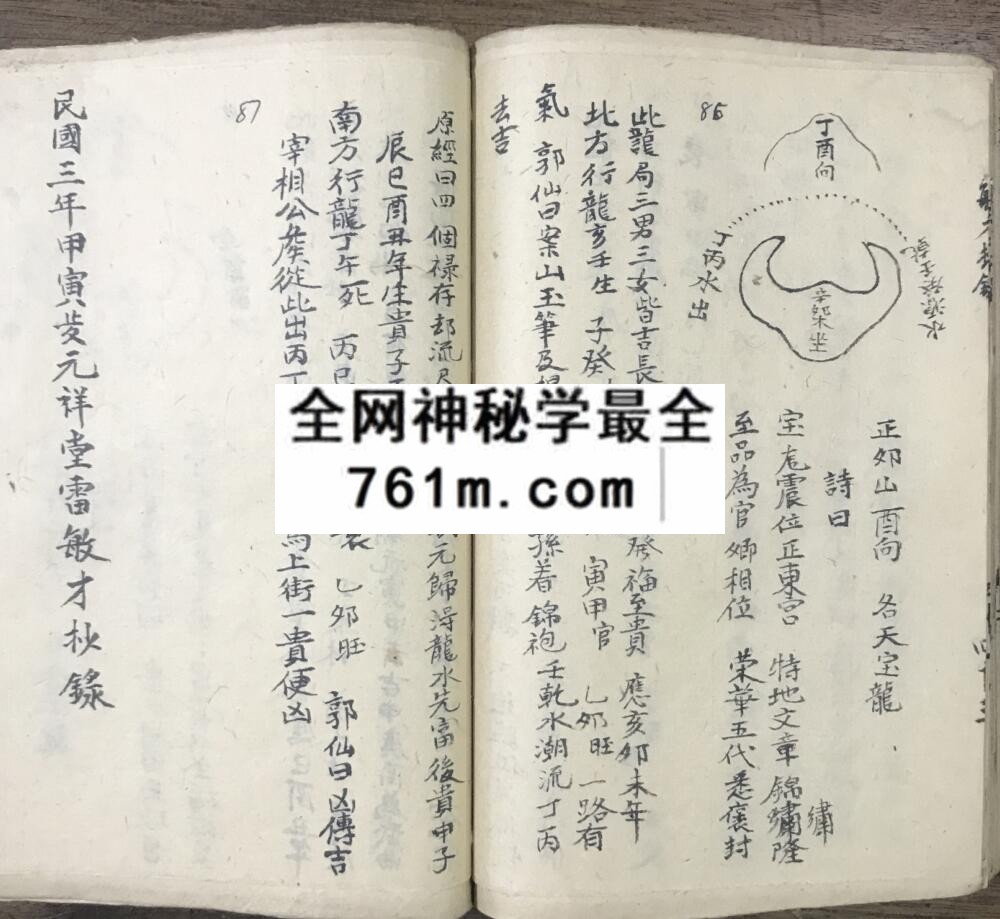 86
丁酉向
丁丙水出
正夘山酉向 各天宝龍
詩曰
宝龙震位正東宫 特地文章錦繡隆
繡
至品為官卿相位 荣華五代悉褒封
此龍局三男三女皆吉長
發福至貴 應亥夘未年
北方行龍亥壬生 子癸
寅甲官 乙夘旺 一路有
氣 郭仙曰案山玉筆及
孫着錦袍壬乾水潮流丁丙
去吉
87
原經曰四個禄存却流
元歸淂龍水先富後貴申子
辰巳酉丑年生貴子
南方行龍丁午死 丙巳
乙夘旺 郭仙曰凶傳吉
宰相公矦從此出丙丁
馬上街一貴便凶
民國三年甲寅歲元祥堂雷敏才抄錄
全网神秘学最全
761m.com